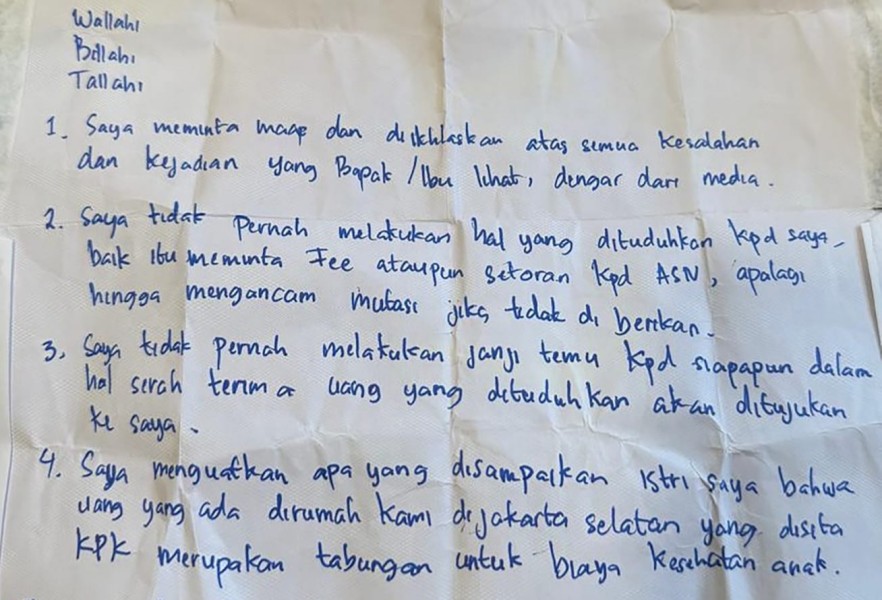 Wallahi
Billahi
Tallahi
1. Saya meminta maap dan diikhlaskan atas semua Kesalahan
dan kejadian yang Bapak/Ibu lihat, dengar dari media.
2. Saya tidak Pernah melakukan hal yang dituduhkan kpd saya,
baik itu meminta Fee ataupun setoran kpd ASN, apalagi
hingga mengancam mutasi jika tidak di berikan.
3. Saya tidak pernah melakukan janji temu kpd siapapun dalam
hal serah terima uang yang dituduhkan akan ditujukan
ke saya.
4. Saya menguatkan apa yang disampaikan istri saya bahwa
uang yang ada dirumah kami dijakarta selatan yang disita
KPK merupakan tabungan untuk biaya kesehatan anak.